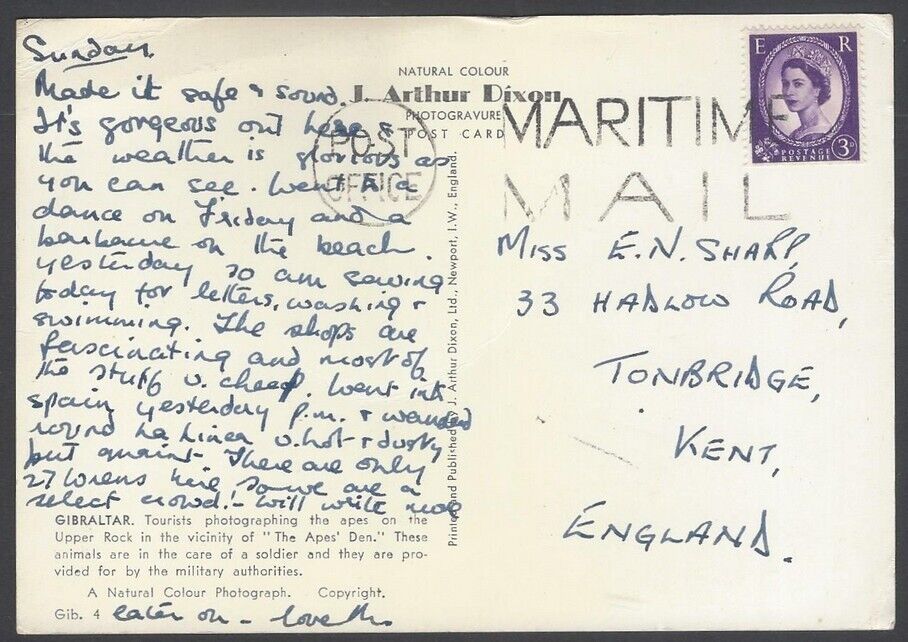 Sunday
Made it safe & sound.
It's gorgeous out here &
the weather is glorious as
you can see. Went to a
dance on Friday and a
on the beach
yesterday so am saving
today for letters, washing +
swimming. The shops are
fascinating and most of
the stuff v. cheap. Went into
Spain yesterday p.m. + wandered
round La Linea v. hot + dusty
but quaint. There are only
27 Wrens here so we are a
select crowd! - Will write more
later on - love
NATURAL COLOUR
J. Arthur Dixon
PHOTOGRAVURE
POST CARD
POST
OFFICE
MARITIME
MAIL
E R
POSTAGE
REVENUE
3D
MISS E.N. SHARP,
33 HADLOW ROAD,
TONBRIDGE,
KENT,
ENGLAND.
Printed and Published by J. Arthur Dixon, Ltd., Newport, I.W., England.
GIBRALTAR. Tourists photographing the apes on the
Upper Rock in the vicinity of "The Apes' Den." These
animals are in the care of a soldier and they are pro-
vided for by the military authorities.
A Natural Colour Photograph. Copyright.
Gib. 4